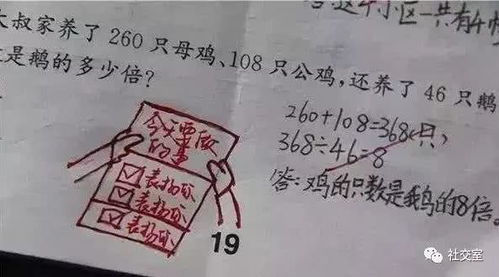 这4小区一共有4
大叔家养了 260 只母鸡、108 只公鸡,还养了 46 只鹅
是鹅的多少倍?
260+108=368(只)
368÷46=8
答:鸡的只数是我鸟的8倍。
今天要做
的事
表扬你
表扬你
表扬你
19
社交室